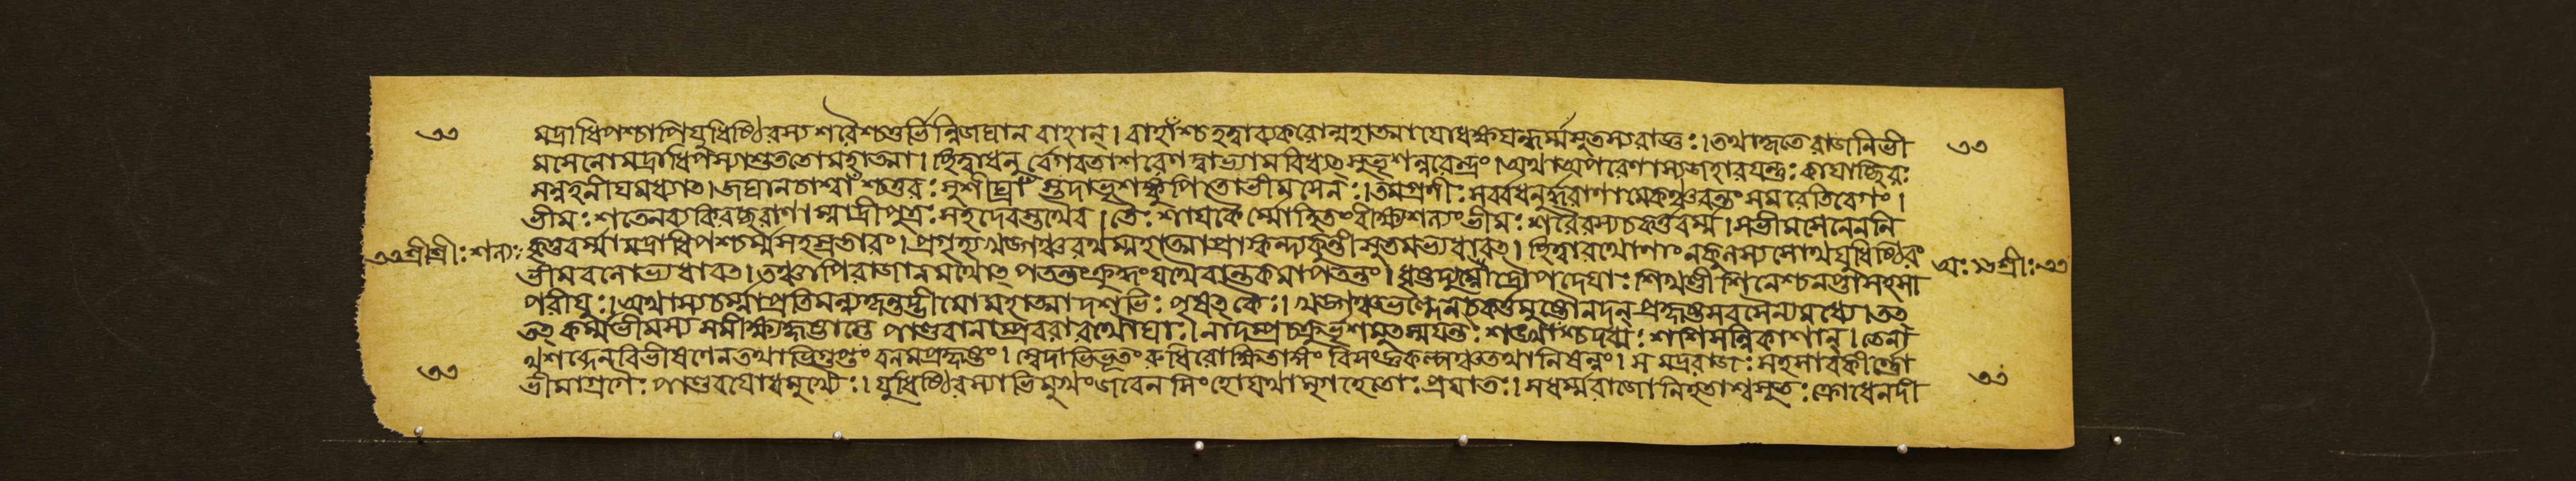 ৩৩
মদ্রাধিপশ্চাপি যুধিষ্ঠিরস্য শরৈশ্চতুর্ভিন্নিজঘান বাহান্। বাহাঁশ্চ হত্বা ব্যকরোন্মহাত্মা যোধক্ষয়ন্ধর্ম্মসুতস্য রাজ্ঞঃ। তথা কৃতে রাজনি ভী
৩৩
মসেনো মদ্রাধিপস্যাশু ততো মহাত্মা। ছিত্বা ধনুর্বেগবতা শরেণ দ্বাভ্যামবিধ্যৎ সুভৃশন্নরেন্দ্রং। অথাপরেণাস্য জহার যন্তুঃ কায়াচ্ছিরঃ
সন্নহনীয়মধ্যাত। জঘান চাশ্বাঁশ্চতুরঃ সুশীঘ্রাঁস্তদা ভৃশঙ্কুপিতো ভীমসেনঃ। তমগ্রণীঃ সর্ব্বধনুর্দ্ধরাণামেকঞ্চরন্তং সমরেতিবেগং।
ভীমঃ শতেন ব্যকিরচ্ছরাণাম্মাদ্রীপুত্রঃ সহদেবস্তথৈব। তৈঃ শায়কৈর্ম্মোহিতং বীক্ষ্য শল্যং ভীমঃ শরৈরস্য চকর্ত্ত বর্ম্ম। স ভীমসেনেন নি
৩৩ শ্রীশ্রীঃ শল্যঃ
কৃত্তবর্ম্মা মদ্রাধিপশ্চর্ম্ম সহস্রতারং। প্রগৃহ্য খড্গঞ্চ রথান্মহাত্মা প্রস্কন্দ্য কুন্তীসুতমভ্যধাবত্। ছিত্বা রথেষাং নকুলস্য সোথ যুধিষ্ঠিরং
শ্রীঃ ৩৩
ভীমবলোভ্যধাবত। তঞ্চাপি রাজানমথোৎপতন্তং ক্রুদ্ধং যথৈবান্তকমাপতন্তং। ধৃষ্টদ্যুম্নো দ্রৌপদেয়াঃ শিখণ্ডী শিনেশ্চ নপ্তা সহসা
পরীয়ুঃ। অথাস্য চর্ম্মাপ্রতিমন্ন্যকৃন্তদ্ভীমো মহাত্মা দশভিঃ পৃষৎকৈঃ। খড্গঞ্চ ভল্লৈর্নিচকর্ত্ত মুষ্টৌ নদন্ প্রহৃষ্টস্তব সৈন্যমধ্যে। তত
তৎ কর্ম্ম ভীমস্য সমীক্ষ্য হৃষ্টাস্তে পাণ্ডবানাম্প্রবরা রথৌঘাঃ। নাদম্প্রচক্রুর্ভৃশমুৎস্ময়ন্তঃ শঙ্খাঁশ্চ দধ্মুঃ শশিসন্নিকাশান্। তেনা
থ শব্দেন বিভীষণেন তথাভিতপ্তং বলমপ্রহৃষ্টং। স্বেদাভিভূতং রুধিরোক্ষিতাঙ্গং বিসংজ্ঞকল্পঞ্চ তথা নিষণ্নং। স মদ্ররাজঃ সহসাবকীর্ণো
৩৩
ভীমাগ্রগৈঃ পাণ্ডবযোধমুখ্যৈঃ। যুধিষ্ঠিরস্যাভিমুখং জবেন সিংহো যথা মৃগহেতোঃ প্রয়াতঃ। স ধর্ম্মরাজো নিহতাশ্বসূতঃ ক্রোধেন দী
৩৩